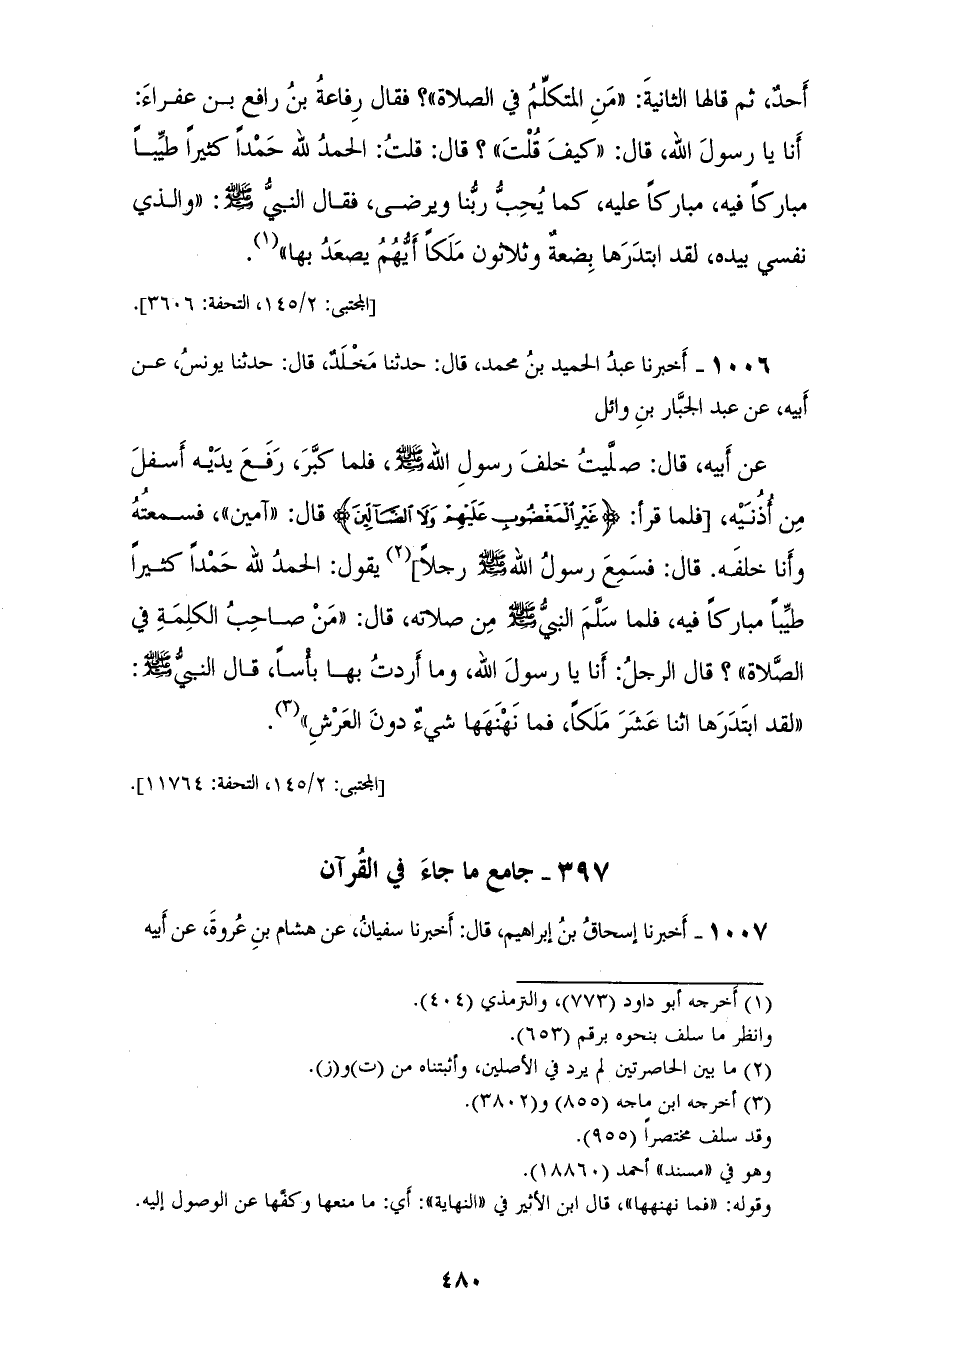 أَحدٌ، ثم قالها الثانيةَ: «مَنِ المتكلِّمُ في الصلاة»؟ فقال رِفاعةُ بنُ رافع بـن عفـراءَ:
أنا يا رسولَ الله، قال: «كيفَ قُلْتَ» ؟ قال: قلتُ: الحمدُ لله حَمْداً كثيراً طيِّبـاً
مباركاً فيه، مباركاً عليه، كما يُحِبُّ ربُّنا ويرضـى، فقـال النبـيُّ ﷺ: «والـذي
نفسي بيده، لقد ابتدَرَها بِضعةٌ وثلاثون مَلَكاً أَيُّهُمُ يصعَدُ بها»(١).
[المجتبى: ١٤٥/٢، التحفة: ٣٦٠٦].
١٠٠٦ ـ أَخبرنا عبدُ الحميد بنُ محمد، قال: حدثنا مَخْلَدٌ، قال: حدثنا يونسُ، عـن
أَبيه، عن عبد الجبَّار بنِ وائل
عن أَبيه، قال: صلَّيتُ خلفَ رسولِ الله ﷺ، فلما كبَّرَ، رَفَـعَ يدَيْـه أَسـفلَ
مِن أُذُنَيْه، [فلما قرأ: ﴿غَيْرِ ٱلْمَغْضُوبِ عَلَيْهِمْ وَلَا ٱلضَّآلِّينَ﴾ قال: «آمين»، فسـمعتُهُ
وأَنا خلفَـه. قال: فسَمِعَ رسولُ الله ﷺ رجلاً](٢) يقول: الحمدُ لله حَمْداً كثـيراً
طيِّباً مباركاً فيه، فلما سَلَّمَ النبيُّ ﷺ مِن صلاته، قال: «مَنْ صـاحِبُ الكلِمَـةِ في
الصَّلاة» ؟ قال الرجلُ: أَنا يا رسولَ الله، وما أَردتُ بهـا بأْسـاً، قـال النبـيُّ ﷺ:
«لقد ابتَدَرَها اثنا عَشَرَ مَلَكاً، فما نَهْنَهَها شيءٌ دونَ العَرْشِ»(٣).
[المجتبى: ١٤٥/٢، التحفة: ١١٧٦٤].
٣٩٧ ـ جامع ما جاءَ في القُرآن
١٠٠٧ ـ أَخبرنا إسحاقُ بنُ إبراهيم، قال: أَخبرنا سفيانُ، عن هشام بنِ عُروةَ، عن أَبيه
(١) أخرجه أبو داود (٧٧٣)، والترمذي (٤٠٤).
وانظر ما سلف بنحوه برقم (٦٥٣).
(٢) ما بين الحاصرتين لم يرد في الأصلين، وأثبتناه من (ت)و(ز).
(٣) أخرجه ابن ماجه (٨٥٥) و(٣٨٠٢).
وقد سلف مختصراً (٩٥٥).
وهو في «مسند» أحمد (١٨٨٦٠).
وقوله: «فما نهنهها»، قال ابن الأثير في «النهاية»: أي: ما منعها وكفَّها عن الوصول إليه.
٤٨٠